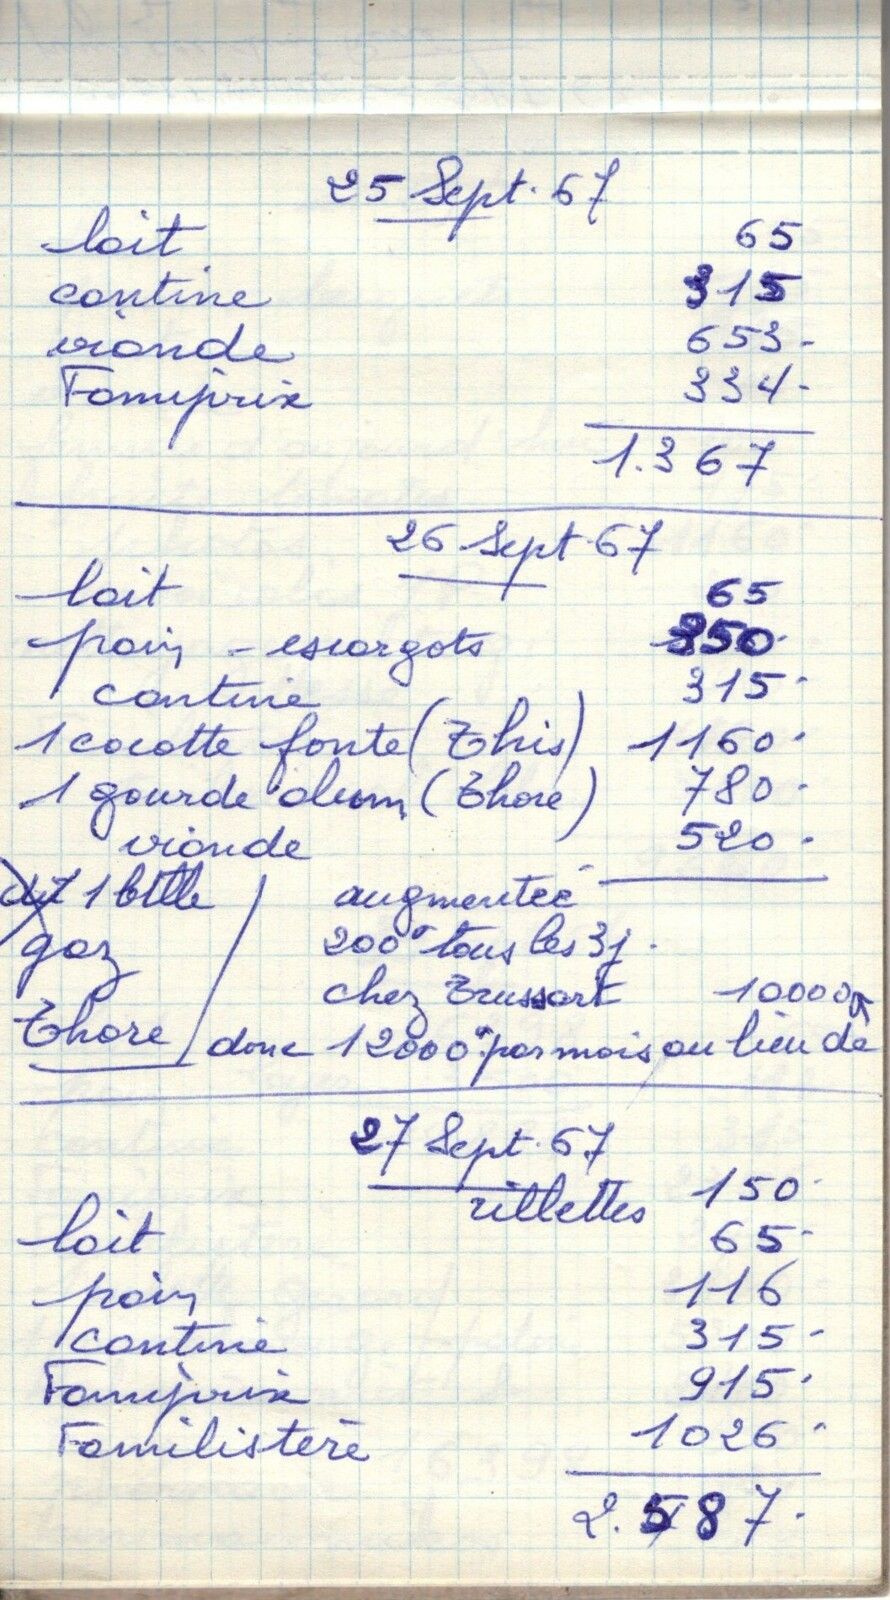 25 Sept. 67
lait 65
cantine 315
viande 653.
Famiprix 334.
1.367
26 Sept. 67
lait 65
pain - escargots 350.
cantine 315.
1 cocotte fonte (This) 1160.
1 gourde alum (Thore) 780.
viande 520.
1 btlle augmentée
gaz 200° tous les 3j.
chez Trussart 10000
Thore donc 12000° par mois au lieu de
27 Sept. 67
rillettes 150.
lait 65.
pain 116
cantine 315.
Famiprix 915.
Familistère 1026.
2.587.